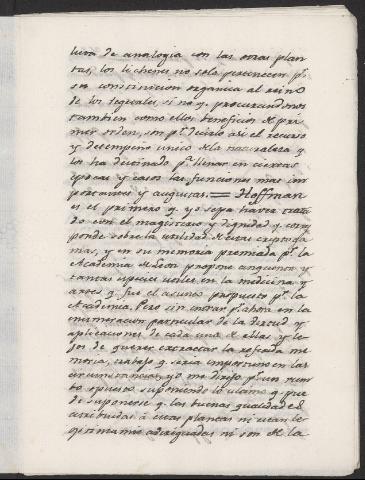 tura de analogia con las otras plan
tas, los lichenes no solo pertenecen pr.
su constitucion organica al reino
de los vegetales, si no q. procurandonos
tambien como ellos beneficios de pri
mer orden, son pr. decirlo asi el recurso
y desempeño unico de la naturaleza q.
los ha destinado pa. llenar en ciertas
epocas y casos las funciones mas im
portantes y augustas. = Hoffman
es el primero q. yo sepa haver trata
do con el magisterio y dignidad q. corres
ponde sobre la utilidad de estas criptoga
mas, y en su memoria premiada pr. la
Academia de Leon propone cinquenta y
tantas especies utiles en la medicina y
artes q. fue el asunto propuesto pr. la
Academia. Pero sin entrar pr. ahora en la
enumeracion particular de la virtud y
aplicaciones de cada una de ellas y le
jos de querer extractar la referida me
moria, trabajo q. seria importuno en las
circunstancias, yo me dirijo pr. un rum
bo opuesto suponiendo lo ultimo q. pue
de suponerse q. las buenas qualidades
atribuidas á estas plantas ni sean le
gitimamte. adiriguadas ni son de la